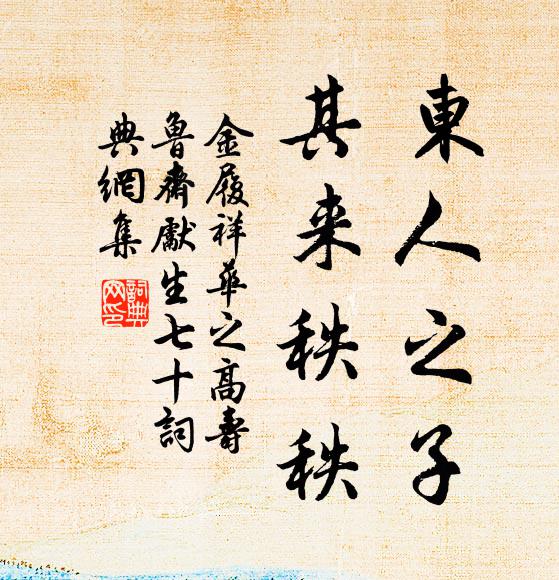 東人之子
其来秩秩
金履祥華之高壽
魯齋獻生七十詞
典網集
詞典
网印